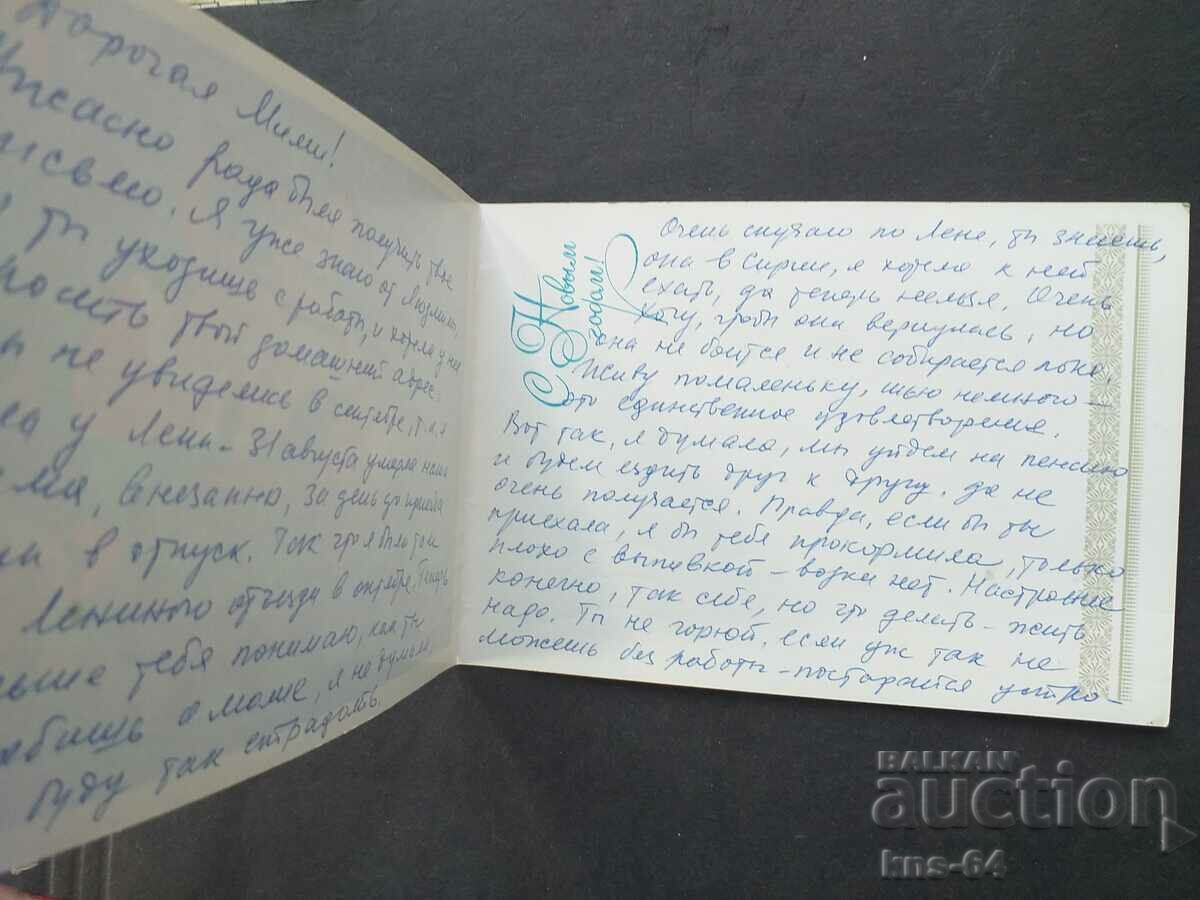 Дорогая Мими!
Ужасно рада была получить твое
письмо. Я уже знаю от Людмилы,
ты уходишь с работы, и хотела у нее
просить твой домашний адрес.
не увиделись в сентябре, т.к. я
у Лены. 31 августа умерла наша
мама, внезапно, за день до приезда
в отпуск. Так что я была там
Лениного отъезда в октябре. Теперь
больше тебя понимаю, как ты
о маме, я не думала,
буду так страдать.
С Новым
годом!
Очень скучаю по Лене, ты знаешь,
она в Сирии, я хотела к ней
ехать, да теперь нельзя. Очень
хочу, чтобы она вернулась, но
она не боится и не собирается пока.
Живу помаленьку, шью немного –
это единственное удовлетворение.
Вот так, я думала, мы уйдем на пенсию
и будем ездить друг к другу, да не
очень получается. Правда, если бы ты
приехала, я бы тебя прокормила, только
плохо с выпивкой – водки нет. Настроение
конечно, так себе, но что делать – жить
надо. Ты не горюй, если уж так не
можешь без работы – постарайся устро-
BALKAN
auction
kns-64